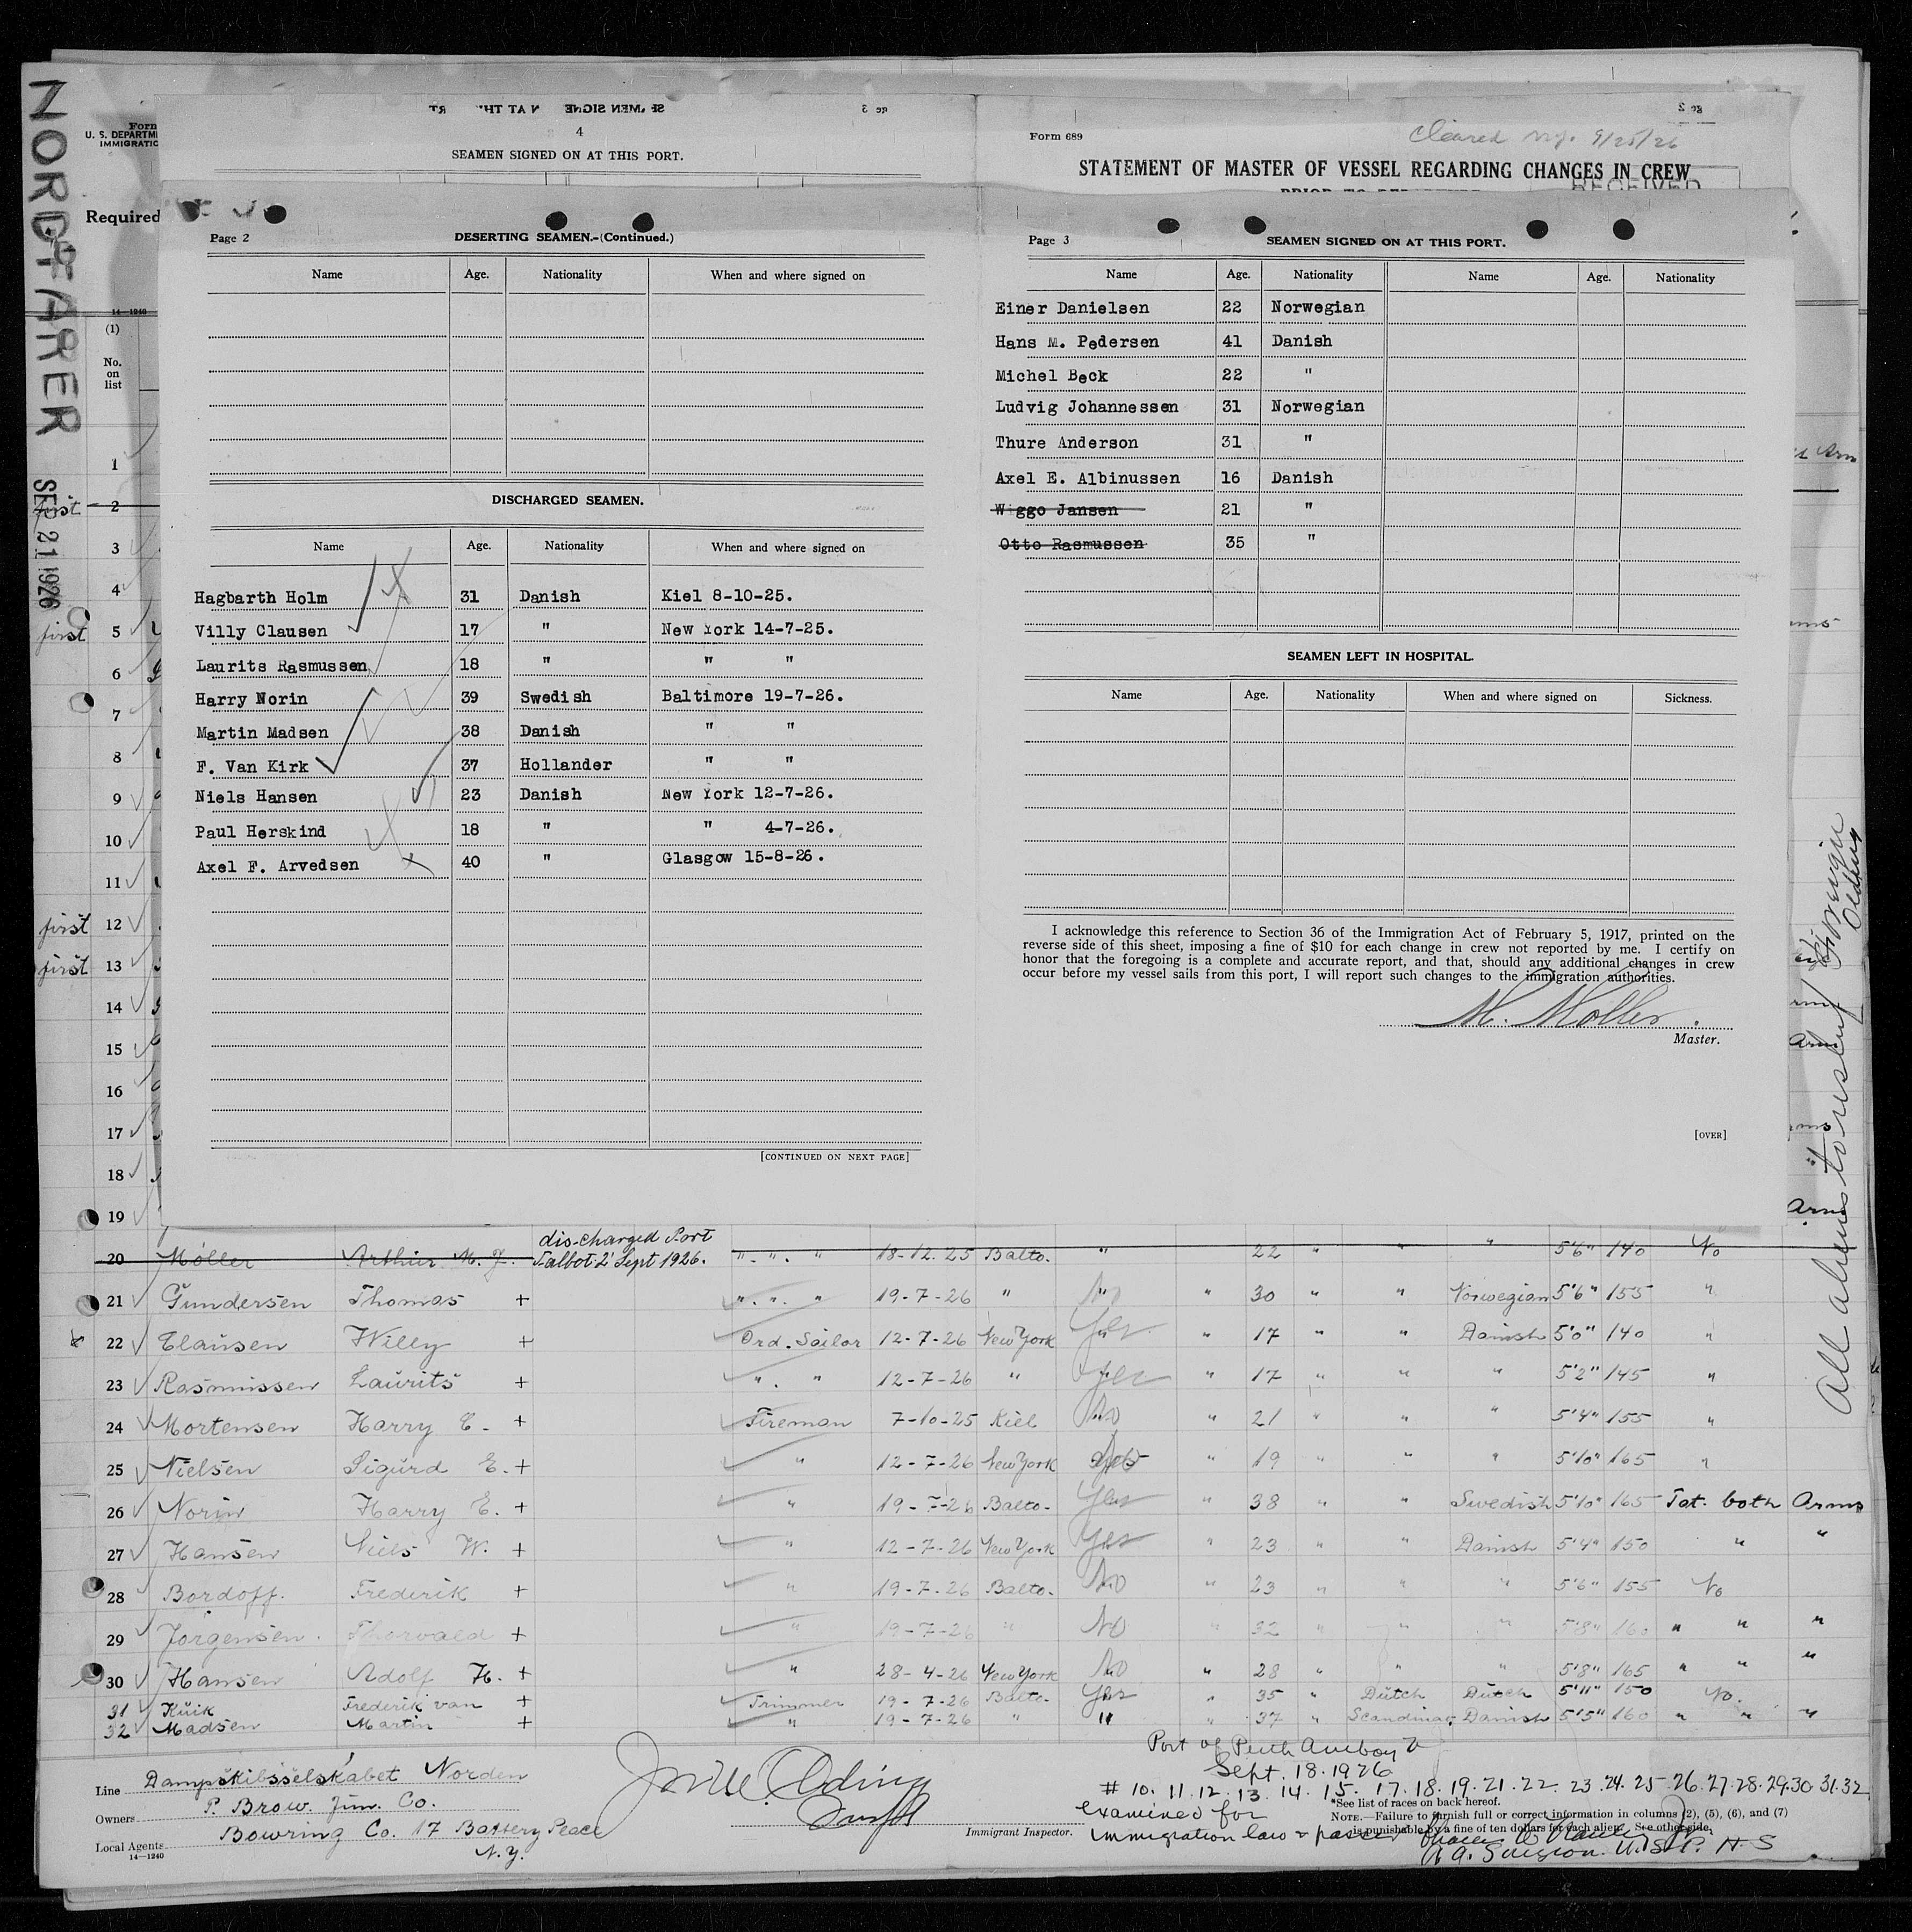 NORDFARER
SEP 21 1926
Form
U. S. DEPARTM
IMMIGRATIO
Required
14-1240
(1)
No.
on
list
4
SEAMEN SIGNED ON AT THIS PORT.
Form 689
Cleared N.Y. 9/25/26
STATEMENT OF MASTER OF VESSEL REGARDING CHANGES IN CREW
RECEIVED
Page 2
DESERTING SEAMEN.-(Continued.)
Name Age. Nationality When and where signed on
DISCHARGED SEAMEN.
Name Age. Nationality When and where signed on
Hagbarth Holm 31 Danish Kiel 8-10-25.
Villy Clausen 17 " New York 14-7-25.
Laurits Rasmussen 18 " " "
Harry Norin 39 Swedish Baltimore 19-7-26.
Martin Madsen 38 Danish " "
F. Van Kirk 37 Hollander " "
Niels Hansen 23 Danish New York 12-7-26.
Paul Herskind 18 " " 4-7-26.
Axel F. Arvedsen 40 " Glasgow 15-8-26.
[CONTINUED ON NEXT PAGE]
Page 3
SEAMEN SIGNED ON AT THIS PORT.
Name Age. Nationality Name Age. Nationality
Einer Danielsen 22 Norwegian
Hans M. Pedersen 41 Danish
Michel Beck 22 "
Ludvig Johannessen 31 Norwegian
Thure Anderson 31 "
Axel E. Albinussen 16 Danish
Wiggo Jansen 21 "
Otto Rasmussen 35 "
SEAMEN LEFT IN HOSPITAL.
Name Age. Nationality When and where signed on Sickness.
I acknowledge this reference to Section 36 of the Immigration Act of February 5, 1917, printed on the
reverse side of this sheet, imposing a fine of $10 for each change in crew not reported by me. I certify on
honor that the foregoing is a complete and accurate report, and that, should any additional changes in crew
occur before my vessel sails from this port, I will report such changes to the immigration authorities.
M. Moller
Master.
[OVER]
1
first 2
3
4
first 5
6
7
8
9
10
11
first 12
first 13
14
15
16
17
18
19
Arms
discharged Port
20 Møller Arthur M. J. Talbot 2' Sept 1926. " " " 18-12-25 Balto. " 22 " " " 5'6" 140 No
21 Gundersen Thomas + " " " 19-7-26 " No " 30 " " Norwegian 5'6" 155 "
22 Clausen Willy + Ord. Sailor 12-7-26 New York Yes " 17 " " Danish 5'0" 140 "
23 Rasmussen Laurits + " " 12-7-26 " Yes " 17 " " " 5'2" 145 "
24 Mortensen Harry E. + Fireman 7-10-25 Kiel No " 21 " " " 5'4" 155 "
25 Nielsen Sigurd E. + " 12-7-26 New York " 19 " " " 5'10" 165 "
26 Norin Harry E. + " 19-7-26 Balto. Yes " 38 " " Swedish 5'10" 165 Tat. both Arms
27 Hansen Niels W. + " 12-7-26 New York Yes " 23 " " Danish 5'4" 150 " "
28 Bordoff. Frederik + " 19-7-26 Balto. No " 23 " " " 5'6" 155 No
29 Jorgensen. Thorvald + " 19-7-26 " No " 32 " " " 5'8" 160 " " "
30 Hansen Adolf H. + " 28-4-26 New York No " 28 " " " 5'8" 165 " " "
31 Kuik Frederik van + Trimmer 19-7-26 Balto. Yes " 35 " Dutch Dutch 5'11" 150 No.
32 Madsen Martin + " 19-7-26 " " " 37 " Scandinav. Danish 5'5" 160 " " "
All aliens to reship foreign
Line Dampskibsselskabet Norden
Owners P. Brow. Jun. Co.
Local Agents Bowring Co. 17 Battery Place
N.Y.
14-1240
Immigrant Inspector.
Port of Perth Amboy
Sept. 18. 1926
# 10. 11. 12. 13. 14. 15. 17. 18. 19. 21. 22 23. 24. 25. 26. 27. 28. 29. 30 31. 32
examined for
immigration law & passed
*See list of races on back hereof.
NOTE.—Failure to furnish full or correct information in columns (2), (5), (6), and (7)
is punishable by a fine of ten dollars for each alien. See other side.
A. A. Surgeon. U.S.P.H.S